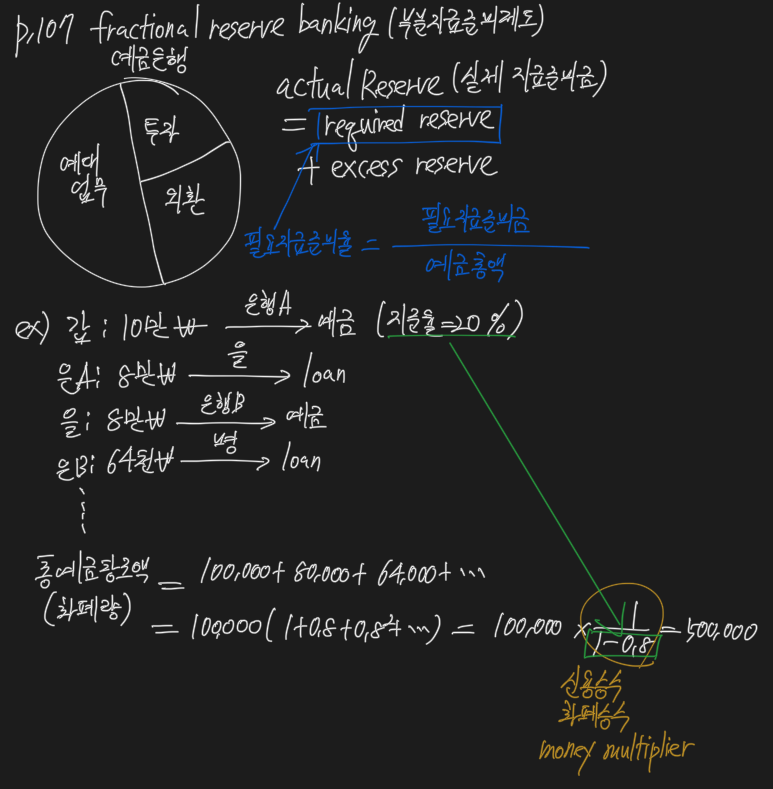 p.107 fractional reserve banking (부분지급준비제도)
예금은행
예대
업무
투자
외환
actual Reserve (실제 지급준비금)
= required reserve
+ excess reserve
필요지급준비율 = 필요지급준비금
예금총액
ex) 갑 ; 10만₩ 은행A 예금 (지준율=20%)
은A; 8만₩ 을 loan
을; 8만₩ 은행B 예금
은B; 64천₩ 병 loan
총예금창조액 = 100,000 + 80,000 + 64,000 + ⋯
(화폐량) = 100,000 ( 1+0.8+0.8²+ ⋯) = 100,000 × 1 = 500,000
1-0.8
신용승수
화폐승수
money multiplier